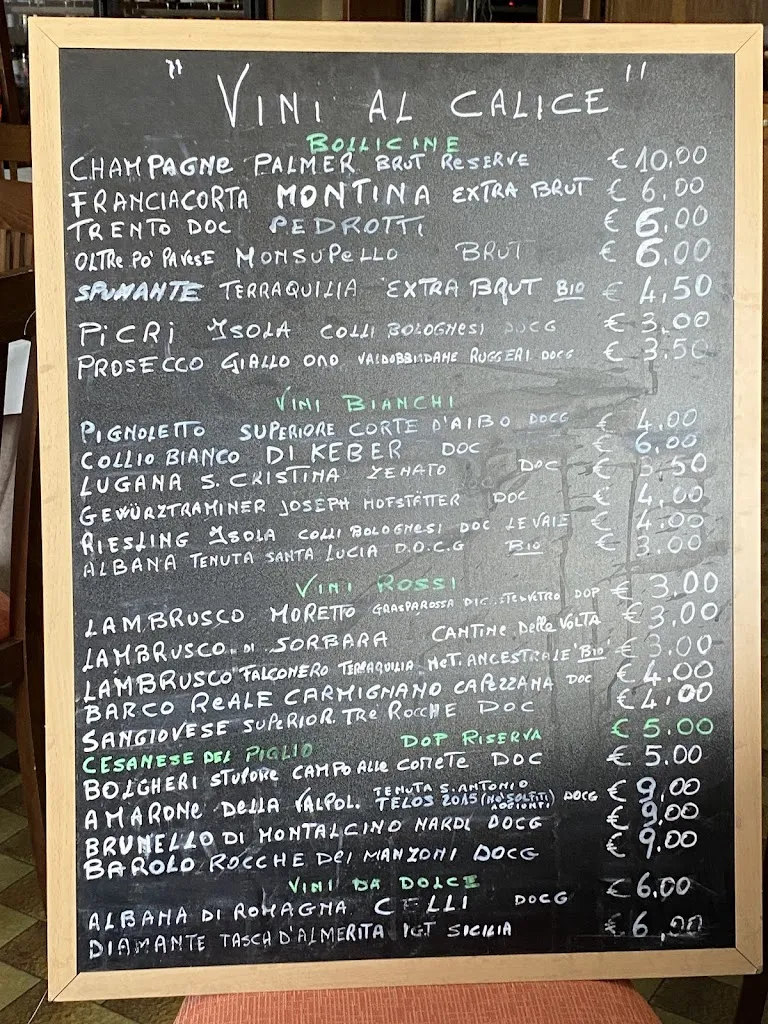 " VINI AL CALICE "
BOLLICINE
CHAMPAGNE PALMER BRUT RESERVE € 10,00
FRANCIACORTA MONTINA EXTRA BRUT € 6,00
TRENTO DOC PEDROTTI € 6,00
OLTRE PO' PAVESE MONSUPELLO BRUT € 6,00
SPUMANTE TERRAQUILIA EXTRA BRUT BIO € 4,50
PICRI ISOLA COLLI BOLOGNESI DOCG € 3,00
PROSECCO GIALLO ORO VALDOBBIADAME RUGGERI DOCG € 3,50
VINI BIANCHI
PIGNOLETTO SUPERIORE CORTE D'AIBO DOCG € 4,00
COLLIO BIANCO DI KEBER DOC € 6,00
LUGANA S. CRISTINA ZENATO DOC € 3,50
GEWÜRZTRAMINER JOSEPH HOFSTÄTTER DOC € 4,00
RIESLING ISOLA COLLI BOLOGNESI DOC LE VAIE € 4,00
ALBANA TENUTA SANTA LUCIA D.O.C.G BIO € 3,00
VINI ROSSI
LAMBRUSCO MORETTO GRASPAROSSA DI CASTELVETRO DOP € 3,00
LAMBRUSCO DI SORBARA CANTINE DELLA VOLTA € 3,00
LAMBRUSCO FALCONERO TERRAQUILIA MET. ANCESTRALE BIO € 3,00
BARCO REALE CARMIGNANO CAPEZZANA DOC € 4,00
SANGIOVESE SUPERIOR. TRE ROCCHE DOC € 4,00
CESANESE DEL PIGLIO DOP RISERVA € 5,00
BOLGHERI STUPORE CAMPO ALLE COMETE DOC € 5,00
AMARONE DELLA VALPOL. TENUTA S. ANTONIO TELOS 2015 (NO SOLFITI AGGIUNTI) DOCG € 9,00
BRUNELLO DI MONTALCINO NARDI DOCG € 9,00
BAROLO ROCCHE DEI MANZONI DOCG € 9,00
VINI DA DOLCE
ALBANA DI ROMAGNA CELLI DOCG € 6,00
DIAMANTE TASCA D'ALMERITA IGT SICILIA € 6,00